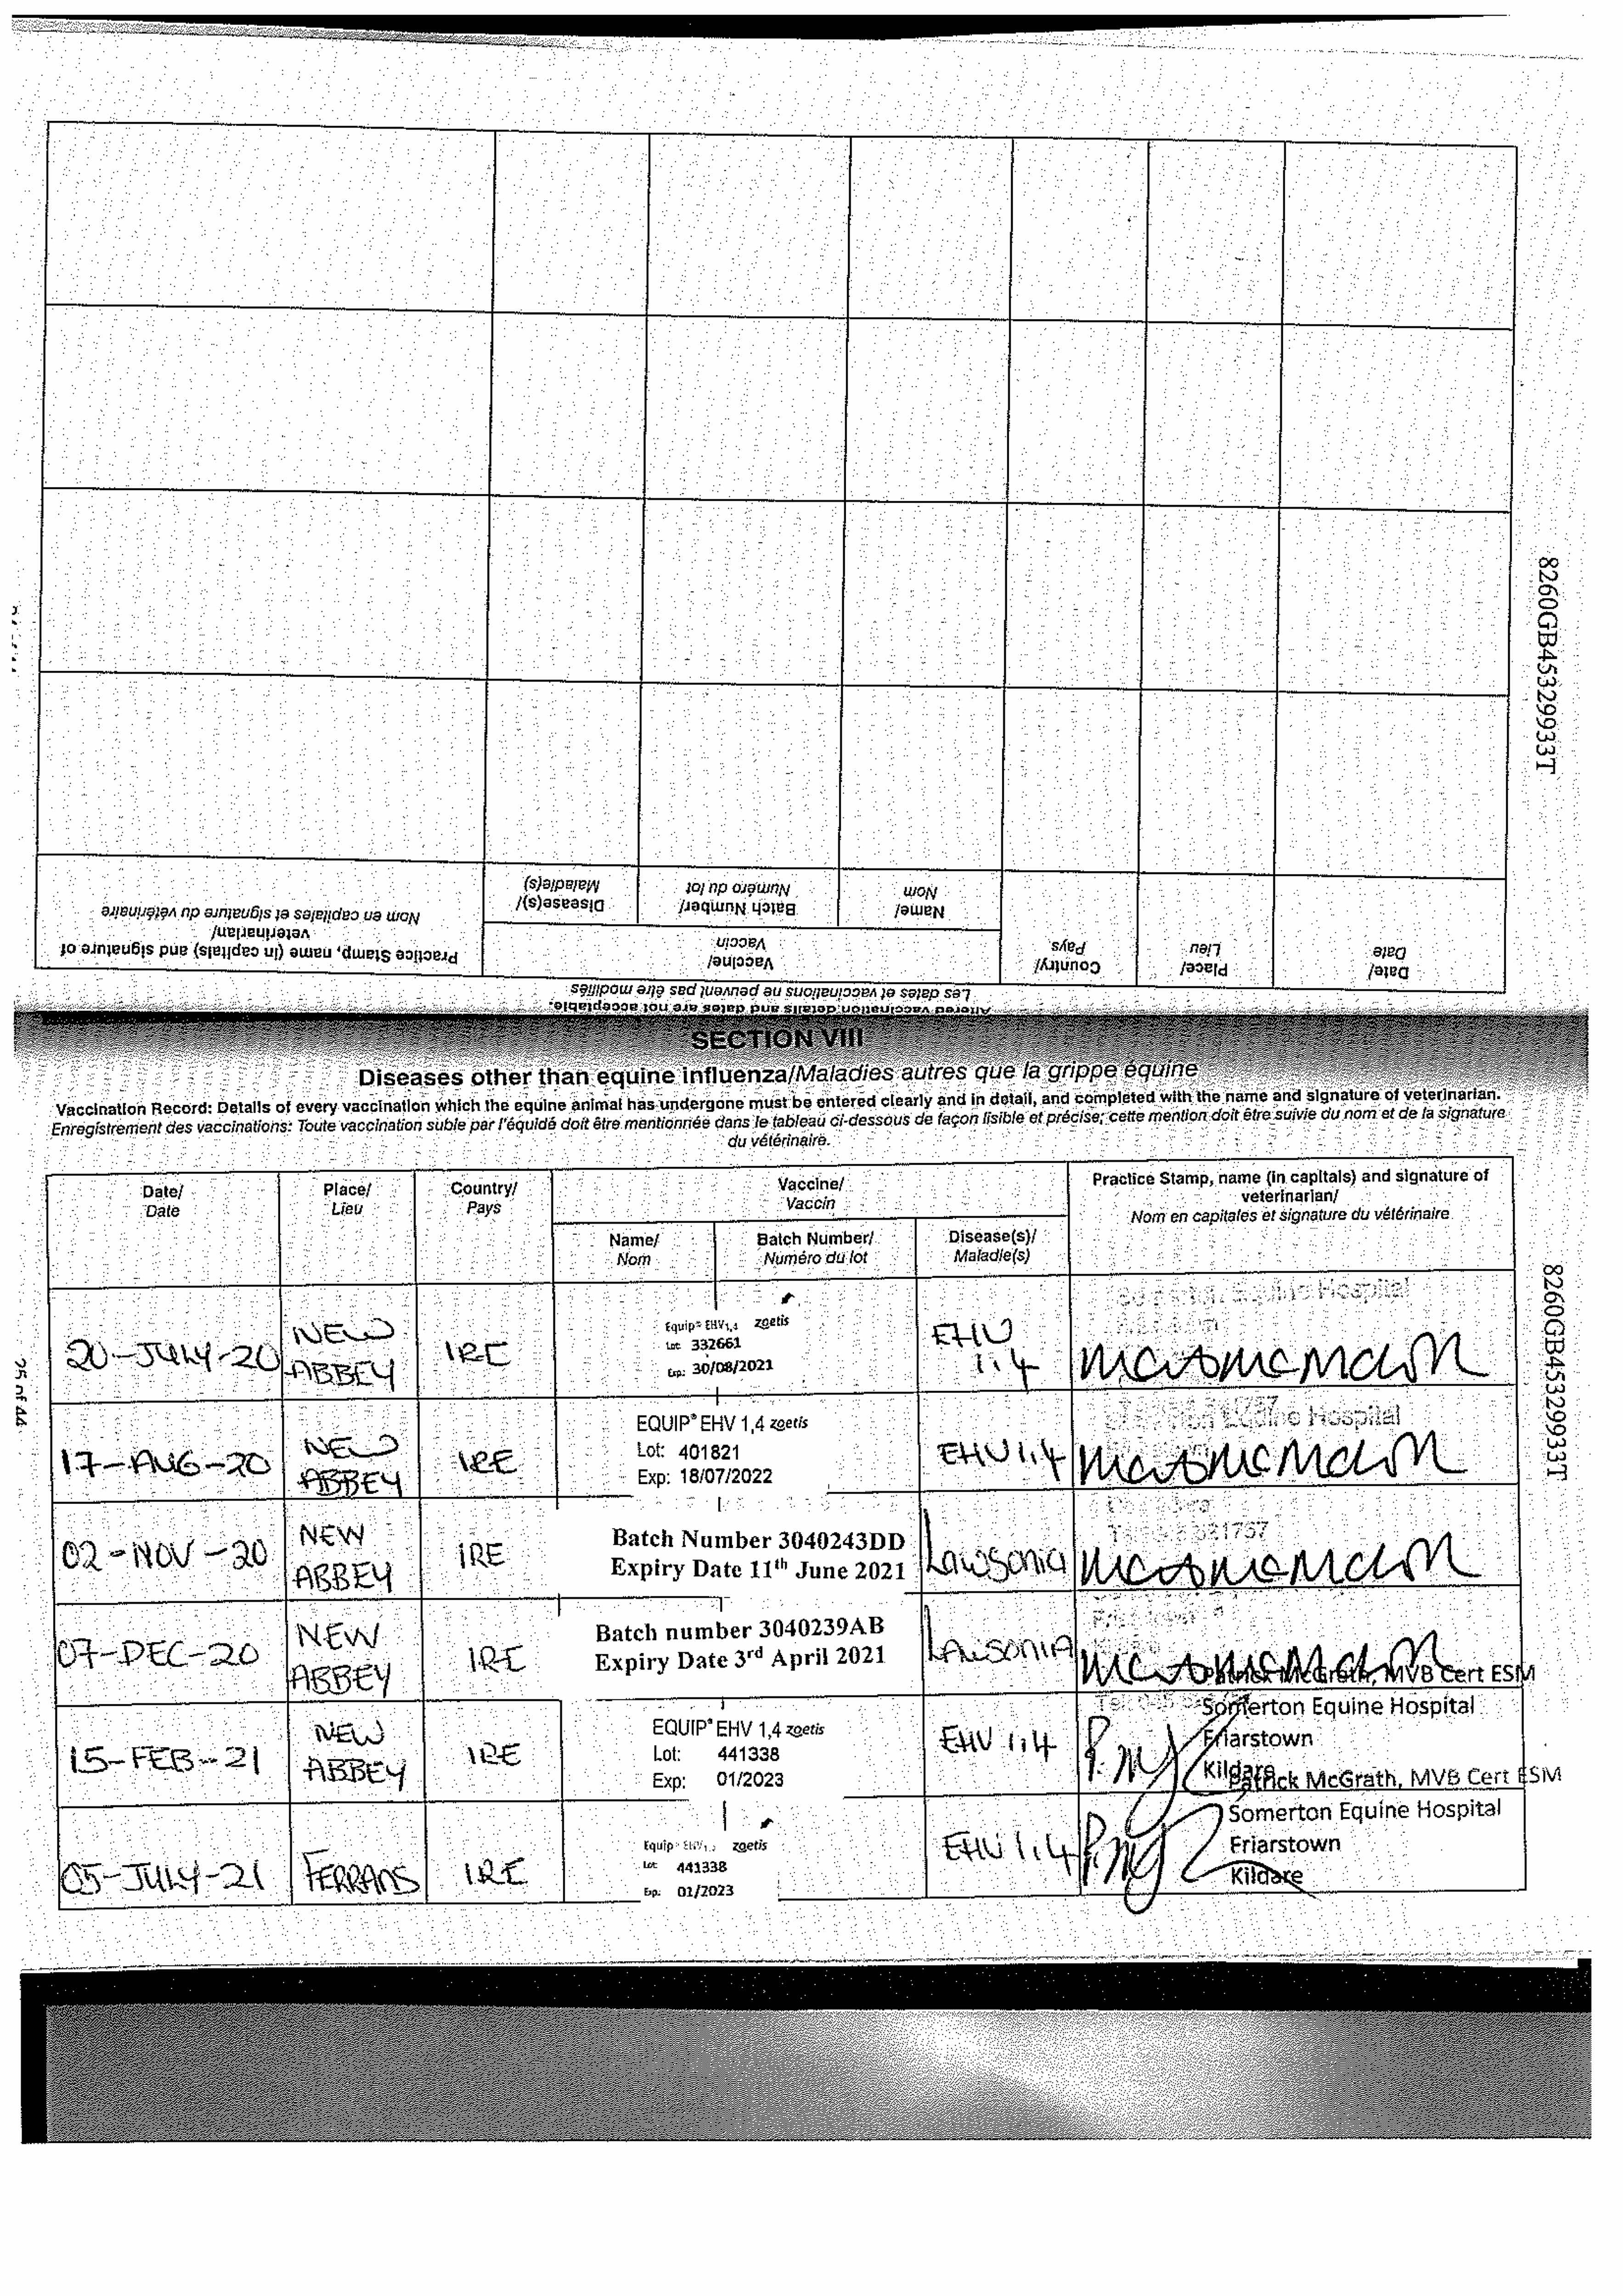 8260GB45329933T
Altered vaccination details and dates are not acceptable.
Les dates et vaccinations ne peuvent pas être modifiés
Date/
Date
Place/
Lieu
Country/
Pays
Vaccine/
Vaccin
Name/
Nom
Batch Number/
Numéro du lot
Disease(s)/
Maladie(s)
Practice Stamp, name (in capitals) and signature of
veterinarian/
Nom en capitales et signature du vétérinaire
SECTION VIII
Diseases other than equine influenza/Maladies autres que la grippe équine
Vaccination Record: Details of every vaccination which the equine animal has undergone must be entered clearly and in detail, and completed with the name and signature of veterinarian.
Enregistrement des vaccinations: Toute vaccination subie par l'équidé doit être mentionnée dans le tableau ci-dessous de façon lisible et précise; cette mention doit être suivie du nom et de la signature
du vétérinaire.
Date/
Date
Place/
Lieu
Country/
Pays
Vaccine/
Vaccin
Name/
Nom
Batch Number/
Numéro du lot
Disease(s)/
Maladie(s)
Practice Stamp, name (in capitals) and signature of
veterinarian/
Nom en capitales et signature du vétérinaire
20-JULY-20
NEW
ABBEY
IRE
Equip® EHV1,4 zoetis
Lot: 332661
Exp: 30/08/2021
EHV
1,4
Equine Hospital
17-AUG-20
NEW
ABBEY
IRE
EQUIP® EHV 1,4 zoetis
Lot: 401821
Exp: 18/07/2022
EHV 1,4
Equine Hospital
02-NOV-20
NEW
ABBEY
IRE
Batch Number 3040243DD
Expiry Date 11th June 2021
Lawsonia
07-DEC-20
NEW
ABBEY
IRE
Batch number 3040239AB
Expiry Date 3rd April 2021
LAWSONIA
15-FEB-21
NEW
ABBEY
IRE
EQUIP® EHV 1,4 zoetis
Lot: 441338
Exp: 01/2023
EHV 1,4
Patrick McGrath, MVB Cert ESM
Somerton Equine Hospital
Friarstown
Kildare
05-JULY-21
FERRANS
IRE
Equip® EHV1,4 zoetis
Lot: 441338
Exp: 01/2023
EHV 1,4
Patrick McGrath, MVB Cert ESM
Somerton Equine Hospital
Friarstown
Kildare
8260GB45329933T
25 of 44